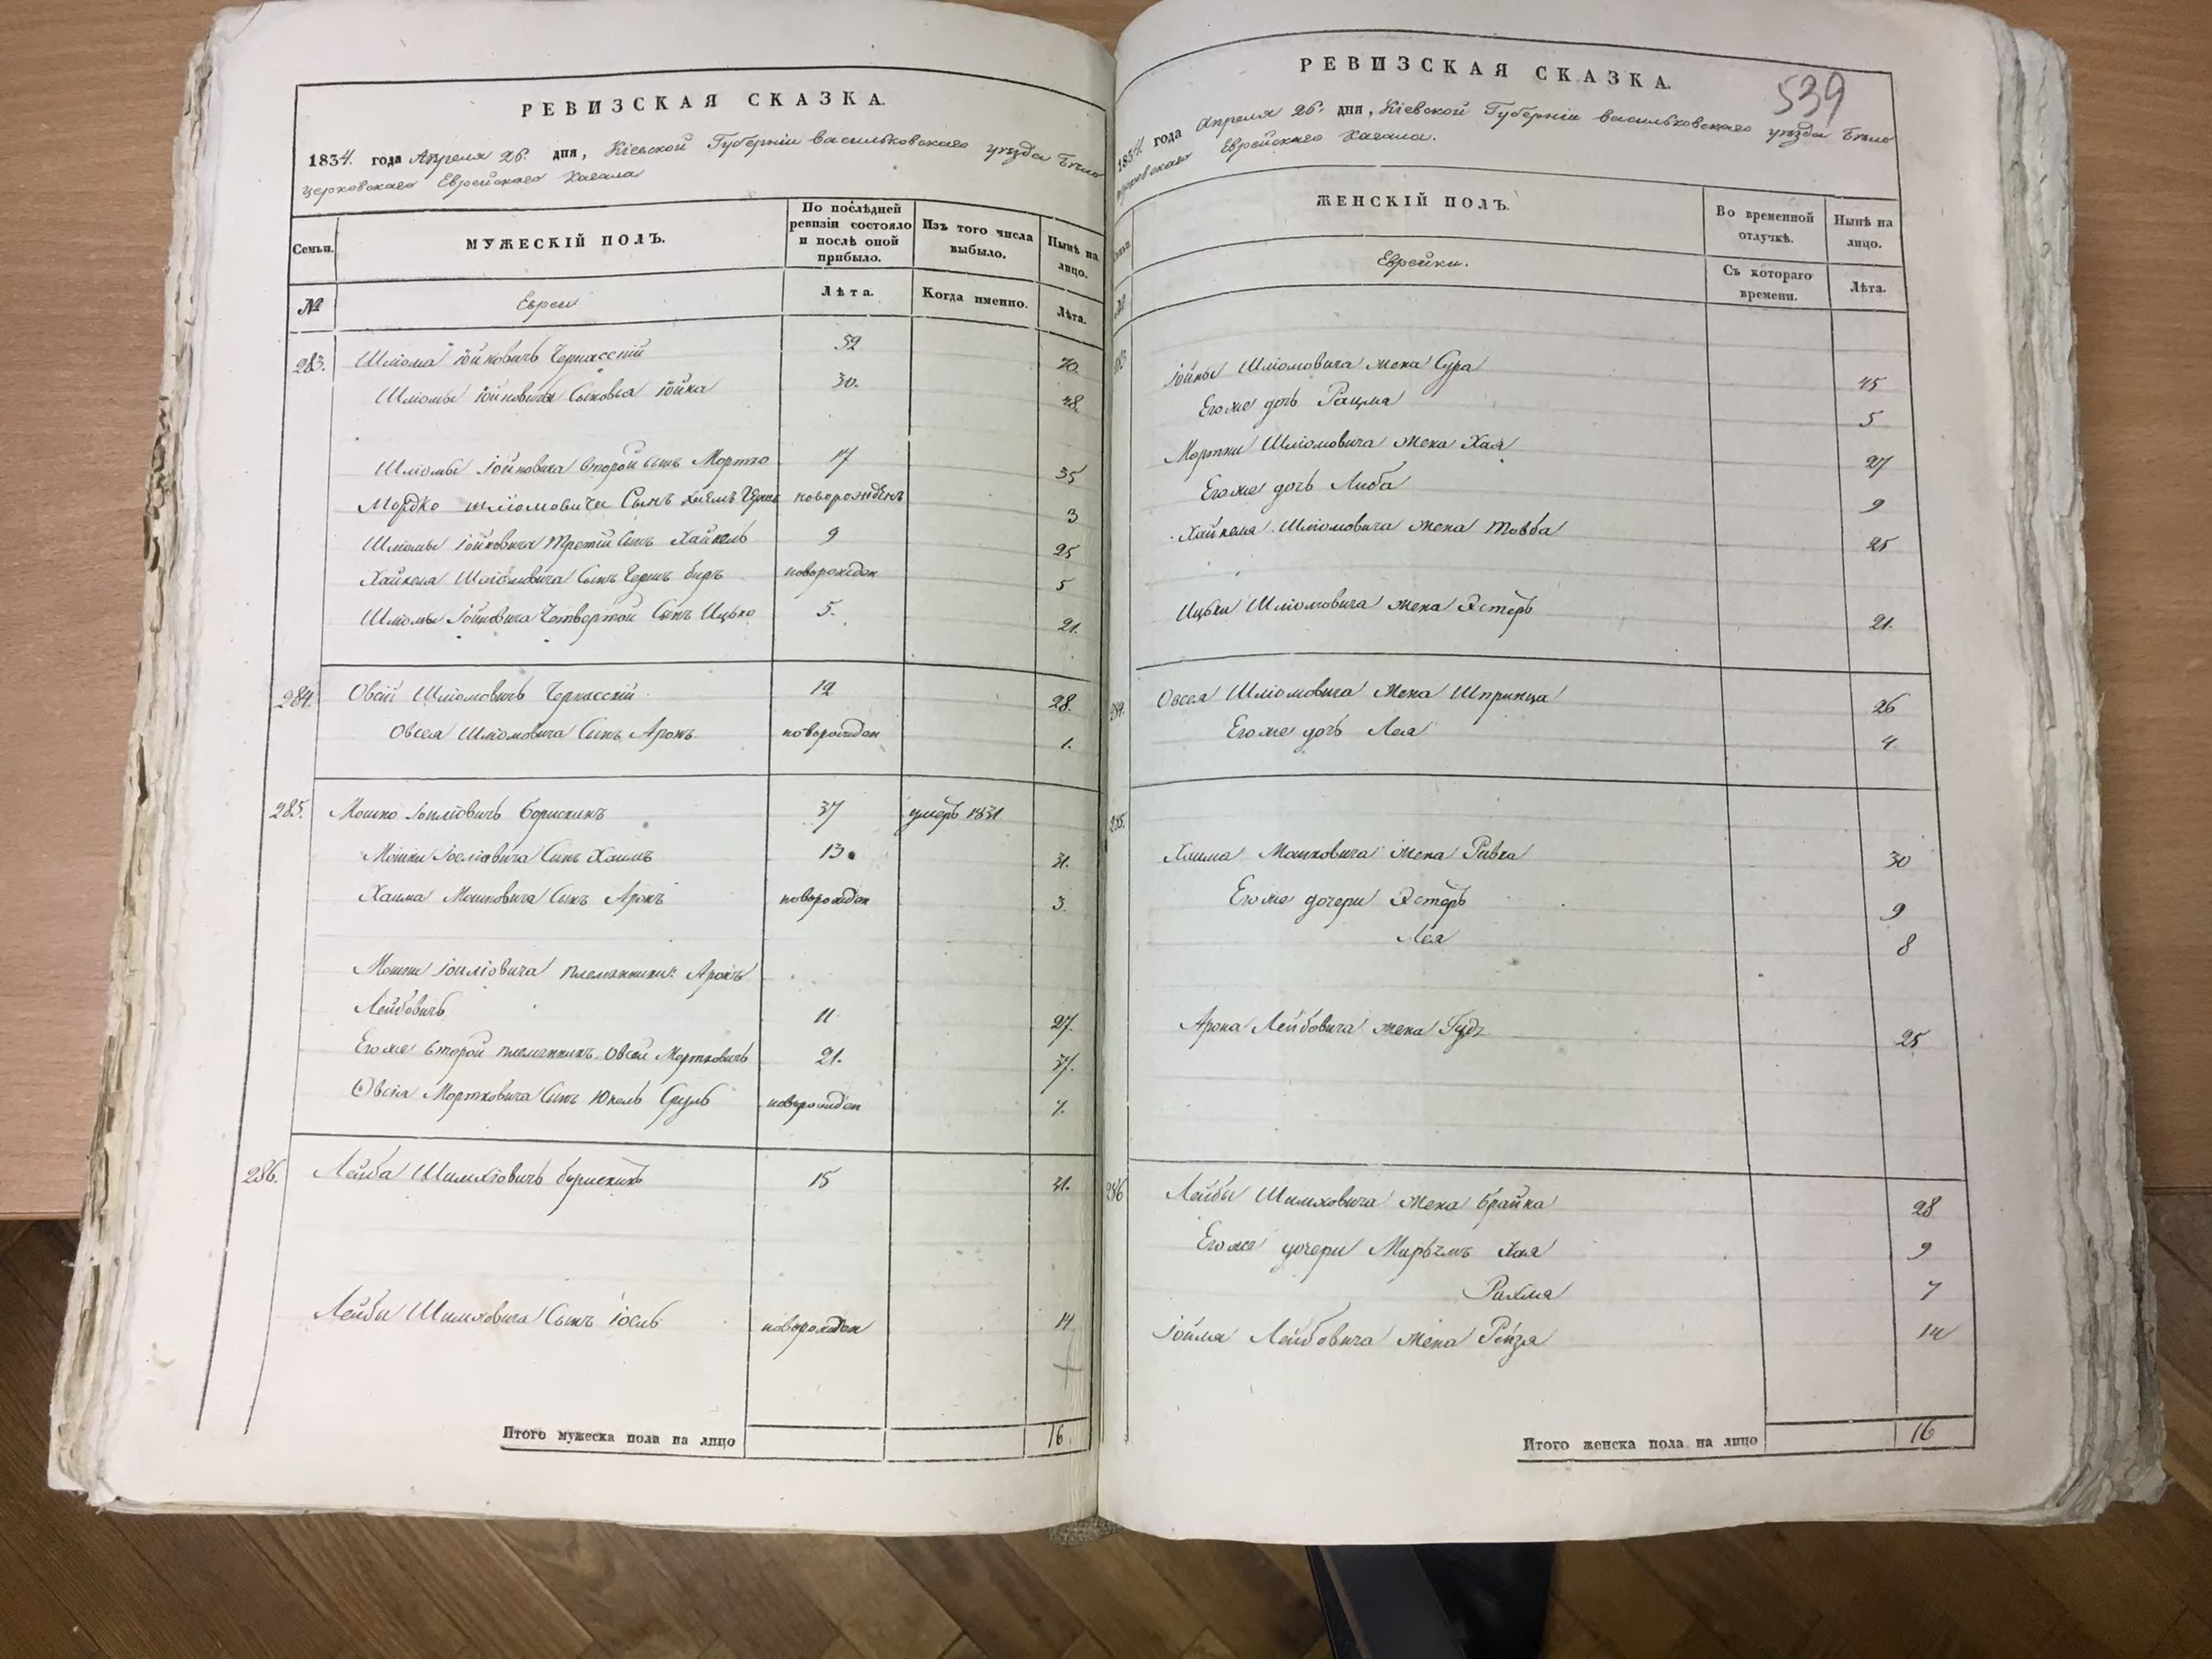 РЕВИЗСКАЯ СКАЗКА.
1834. года Апреля 26. дня, Кіевской Губерніи васильковскаго уезда Бело
церковскаго Еврейскаго Кагала
Семьи.
МУЖЕСКІЙ ПОЛЪ.
По послѣдней ревизіи состояло и послѣ оной прибыло.
Изъ того числа выбыло.
Нынѣ на лицо.
№
Евреи
Лѣта.
Когда именно.
Лѣта.
283. Шліома Іойновичъ Черкасскій 52 70.
Шліомы Іойновича Сыновья Іойна 30. 48.
Шліомы Іойновича второй сынъ Мортко 17 35
Мордко шліомовича Сынъ хаимъ Герш новорожденъ 3
Шліомы Іойновича третій сынъ Хайкель 9 25
Хайкеля Шліомовича Сынъ Герш беръ новорожден 5
Шліомы Іойновича Четвертой Сынъ Ицько 5. 21.
284. Овсій Шліомовичъ Черкасскій 12 28.
Овсея Шліомовича Сынъ Аронъ новорожден 1.
285. Мошко Іоиліовичъ Борискинъ 37 умеръ 1831
Мошки Іоеліовича Сынъ Хаимъ 13. 31.
Хаима Мошковича Сынъ Аронъ новорожден 3.
Мошки Іоиліовича племянники Аронъ
Лейбовичъ 11 27.
Егоже второй племянникъ Овсей Мортковичъ 21. 37.
Овсія Мортковича Сынъ Юкель Сруль новорожден 7.
286. Лейба Шимховичъ борискинъ 15 31.
Лейбы Шимховича Сынъ Іоель новорожден 14
Итого мужеска пола на лицо 16.
РЕВИЗСКАЯ СКАЗКА.
539
1834 года Апреля 26. дня, Кіевской Губерніи васильковскаго уезда Бело
церковскаго Еврейскаго Кагала.
Семьи.
ЖЕНСКІЙ ПОЛЪ.
Во временной отлучкѣ.
Нынѣ на лицо.
№
Еврейки.
Съ котораго времени.
Лѣта.
283 Іойны Шліомовича жена Сура 45
Егоже дочь Рацма 5
Мортки Шліомовича жена Хая 27
Егоже дочь Либа 9
Хайкеля Шліомовича жена Товба 25
Ицьки Шліомовича жена Эстеръ 21.
284. Овсея Шліомовича жена Шпринца 26
Егоже дочь Лея 4.
285.
Хаима Мошковича жена Ривка 30
Егоже дочери Эстеръ 9
Лея 8
Арона Лейбовича жена Гудя 25
286 Лейбы Шимховича жена Брайна 28
Егоже дочери Мирьямъ Хая 9
Рахма 7
Іойля Лейбовича жена Рейза 14
Итого женска пола на лицо 16